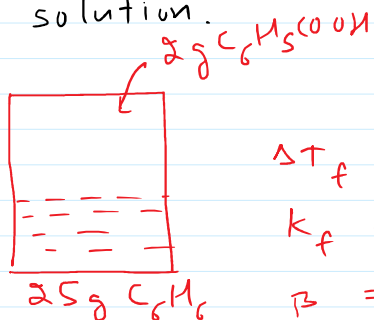 solution.
2g C₆H₅COOH
ΔT_f
K_f
25g C₆H₆
β =